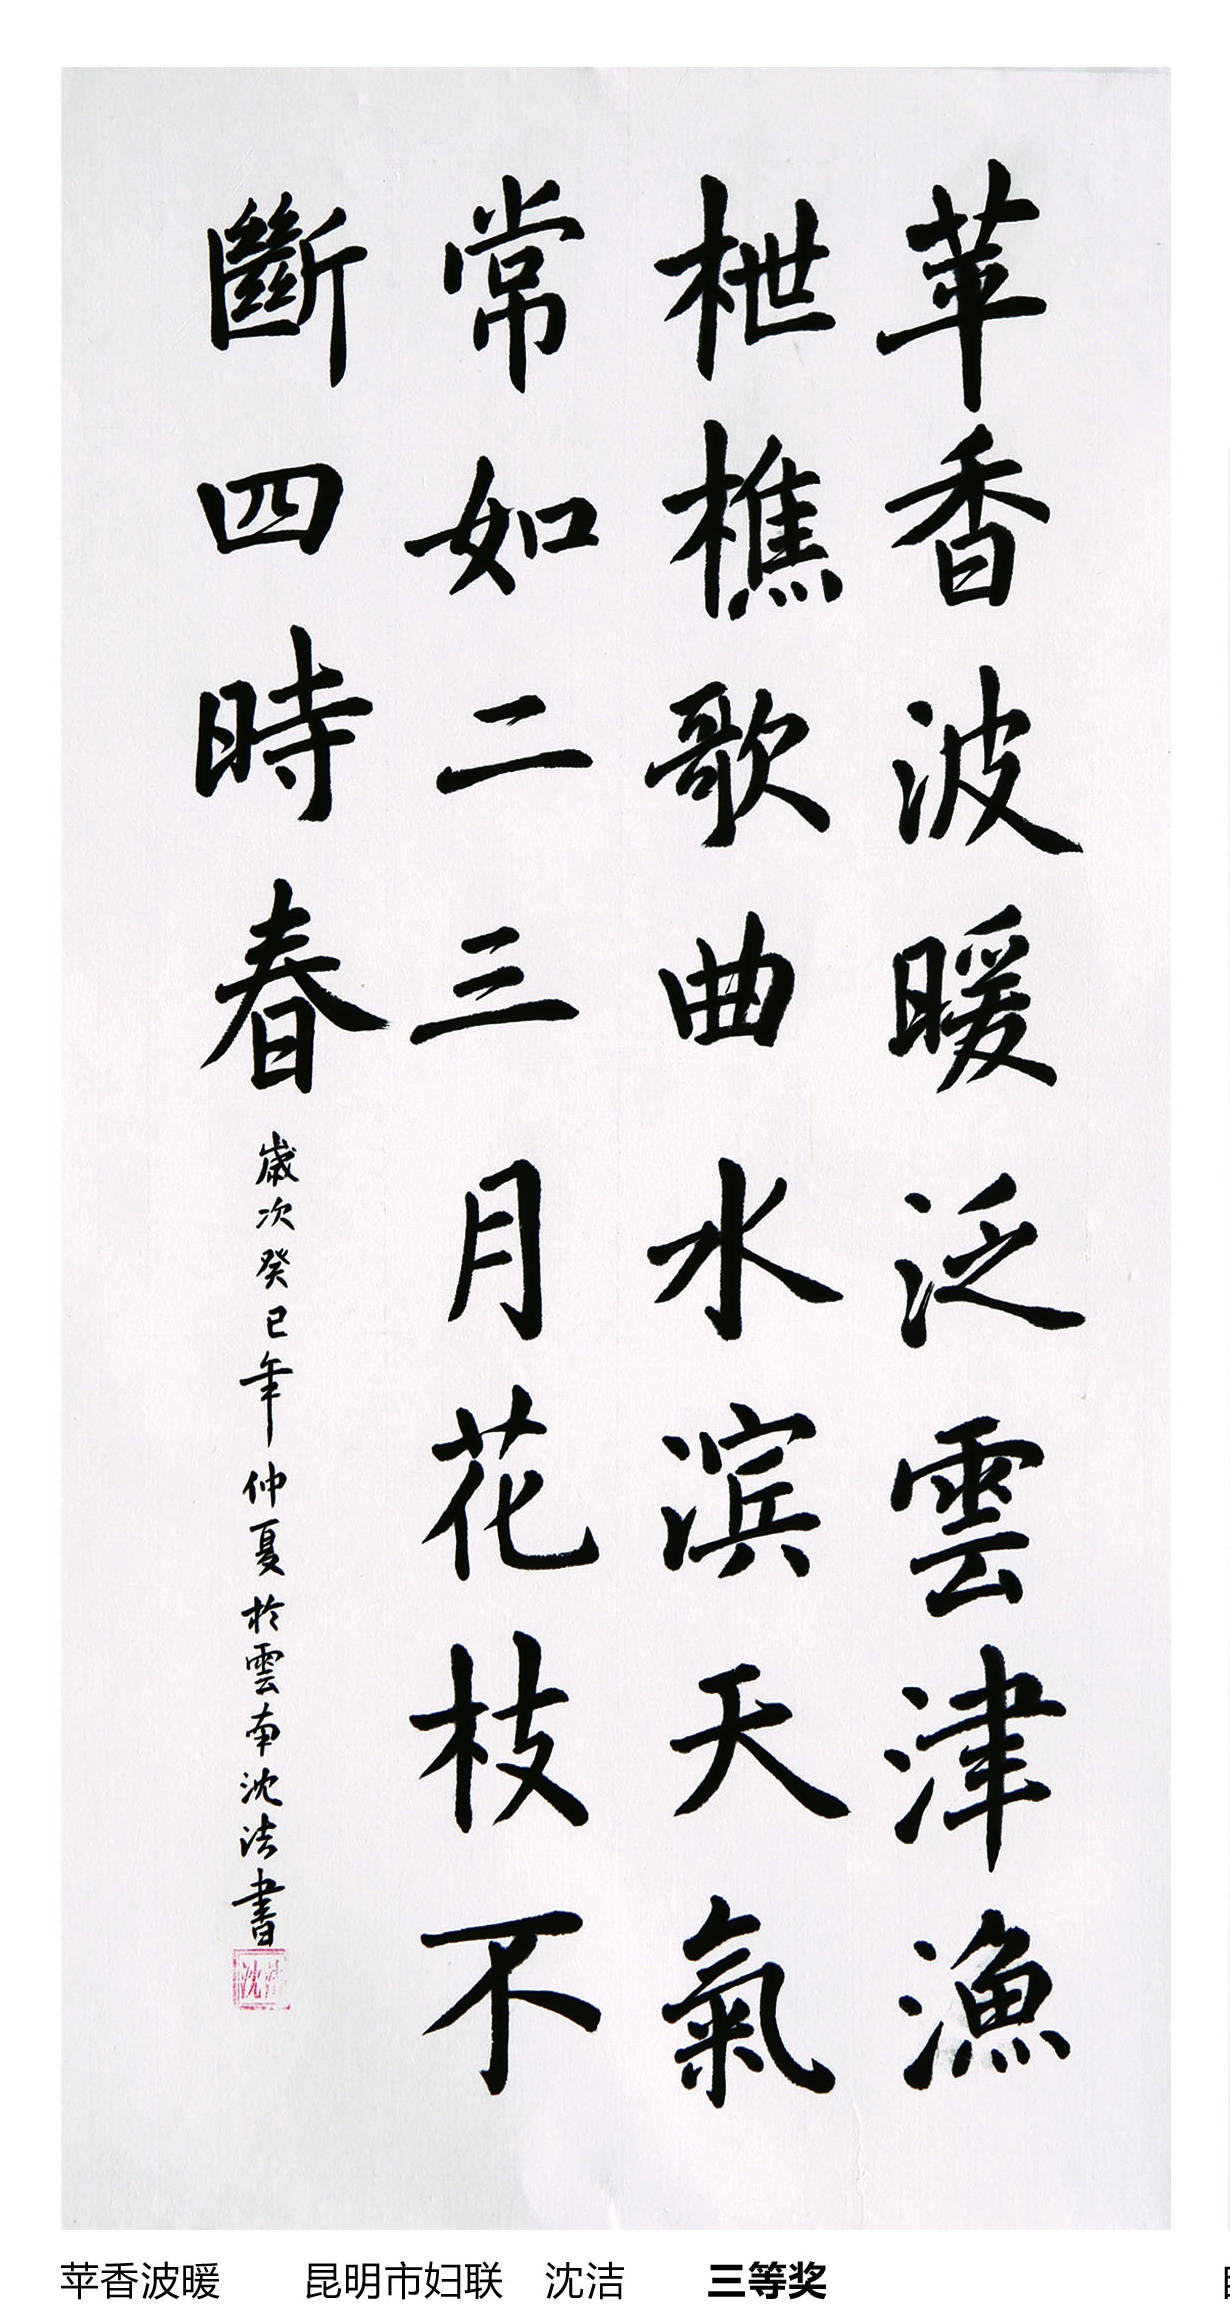 苹香波暖泛雲津漁
枻樵歌曲水滨天氣
常如二三月花枝不
斷四時春
歲次癸巳年仲夏於雲南沈洁書
沈洁
苹香波暖 昆明市妇联 沈洁 三等奖